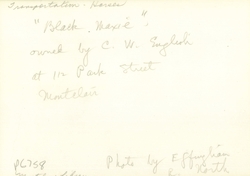 Transportation - Horses
"Black Maxie"
owned by C. W. English
at 112 Park Street
Montclair
P6758
Photo by Effingham
North